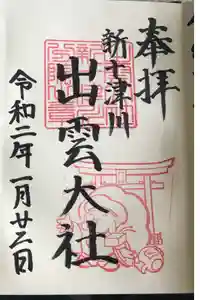 奉拝
新十津川
出雲大社
令和二年一月廿二日